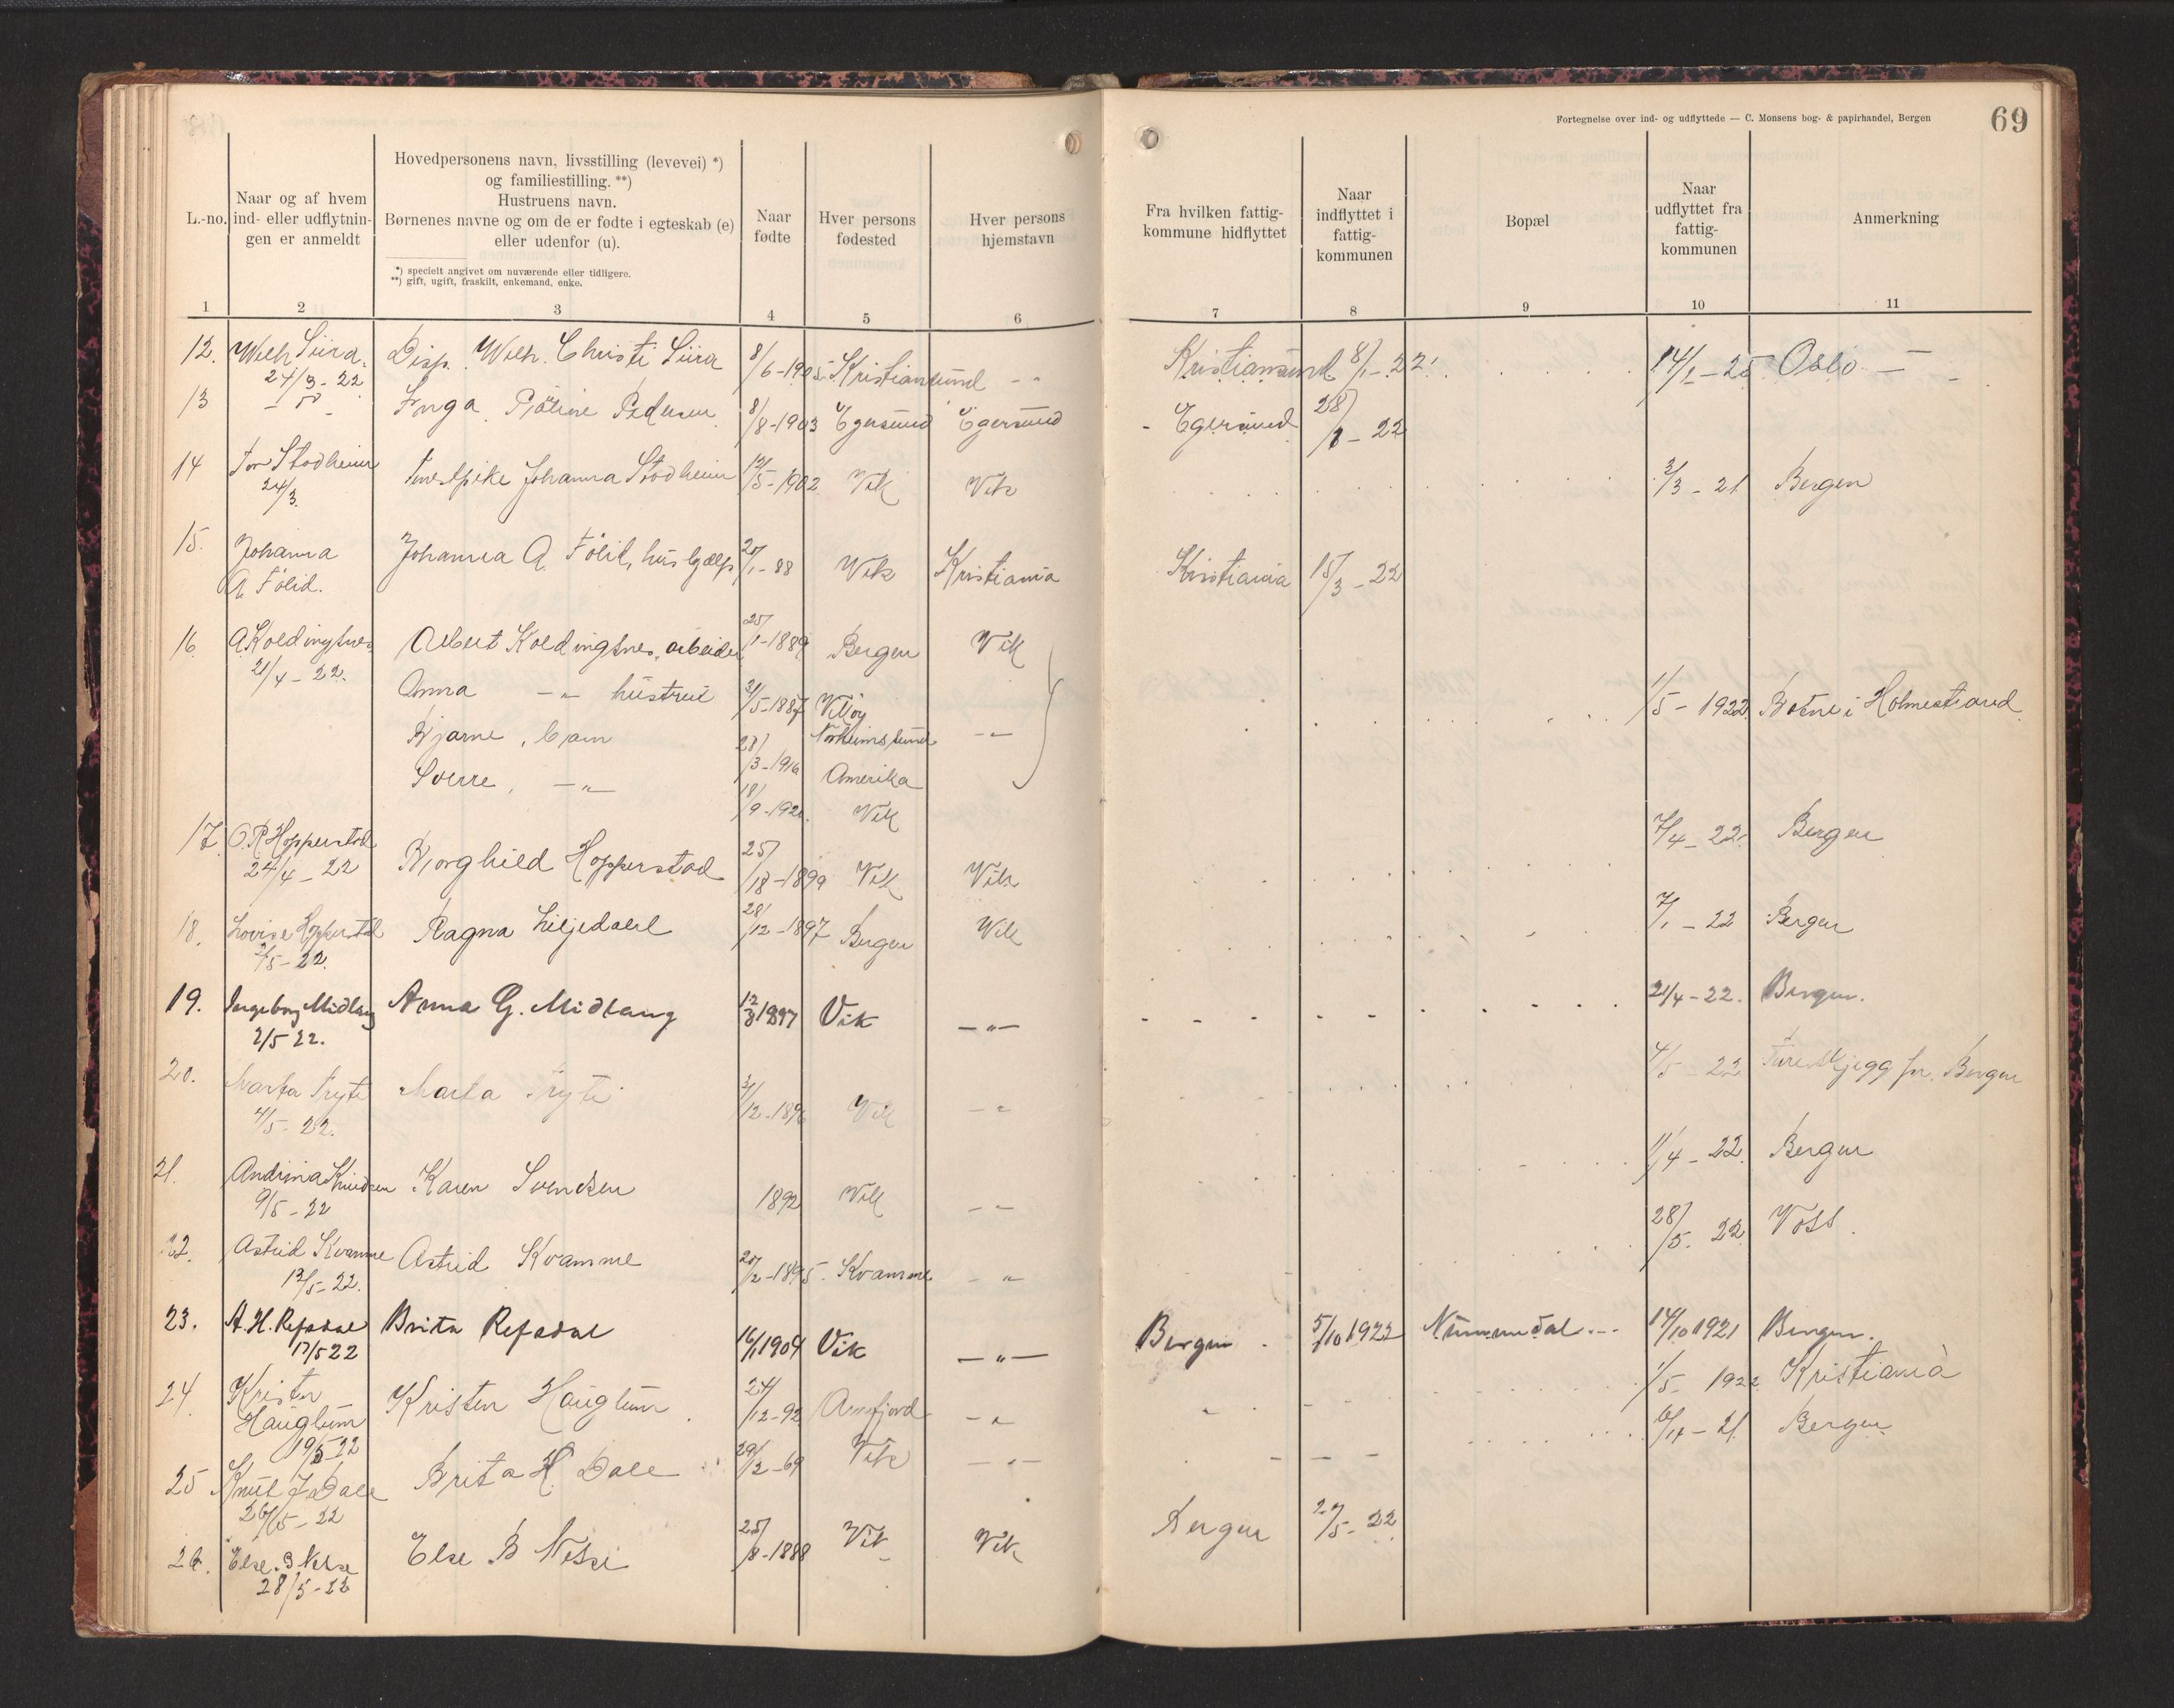 Fortegnelse over ind- og udflyttede — C. Monsens bog- & papirhandel, Bergen
69
L.-no.
Naar og af hvem
ind- eller udflytnin-
gen er anmeldt
Hovedpersonens navn, livsstilling (levevei) *)
og familiestilling. **)
Hustruens navn.
Børnenes navne og om de er fødte i egteskab (e)
eller udenfor (u).
*) specielt angivet om nuværende eller tidligere.
**) gift, ugift, fraskilt, enkemand, enke.
Naar
fødte
Hver persons
fødested
Hver persons
hjemstavn
Fra hvilken fattig-
kommune hidflyttet
Naar
indflyttet i
fattig-
kommunen
Bopæl
Naar
udflyttet fra
fattig-
kommunen
Anmerkning
1 2 3 4 5 6 7 8 9 10 11
12. Wilh Siira. Disp. Wilh. Christi Siira 8/6-1905 Kristiansund - " Kristiansund 8/1-22 14/1-25 Oslo —
24/3-22
13 Inga Pedersen 8/8-1903 Egersund Egersund - Egersund 28/1-22
14 Tor Stadheim Johanna Stadheim 12/5-1902 Vik Vik 3/3-21 Bergen
24/3.
15. Johanna Johanna A. Følid, hushjælp 20/1-88 Vik Kristiania Kristiania 15/3-22
A. Følid.
16. A. Koldingsnes Albert Koldingsnes, arbeider 25/1-1889 Bergen Vik
21/4-22. Anna -"- hustru 31/5-1887 Vikøy 1/5-1922 Botne i Holmestrand
Bjarne, barn 28/3-1916 Norheimsund -"-
Sverre, -"- Amerika
18/9-1921. Vik
17. O. R. Hopperstad Borghild Hopperstad 25/ -1899 Vik Vik 7/4-22. Bergen
24/4-22
18. Lovise Hopperstad Ragna Liljedahl 28/12-1897 Bergen Vik 7/1-22 Bergen
2/5-22.
19. Ingeborg Midlang Anna G. Midlang 12/8 1897 Vik —"— 21/4-22. Bergen.
2/5 22.
20. Marta Tryti Marta Tryti 3/12-1896 Vik -"- 4/5-22 Bergen
4/5-22.
21. Andrina Knudsen Karen Svendsen 1892 Vik -"- 11/4-22. Bergen
9/5-22
22. Astrid Kvamme Astrid Kvamme 20/2-1895. Kvamme -"- 28/5. 22 Voss.
12/5-22.
23. A. H. Refsdal Brita Refsdal 16/1 1904 Vik —"— Bergen 5/10 1922 Nummedal 14/10 1921 Bergen.
17/5 22
24. Kristen Kristen Hauglum 24/12-92 Arnafjord -"- 1/5-1922 Kristiania
Hauglum
19/5-22
25 Knut J. Dale Brita H. Dale 29/2-69 Vik -"- 6/11-21 Bergen
26/5-22
26. Else B Nesse Else B Nesse 25/8-1888 Vik Vik Bergen 27/5-22
28/5-22